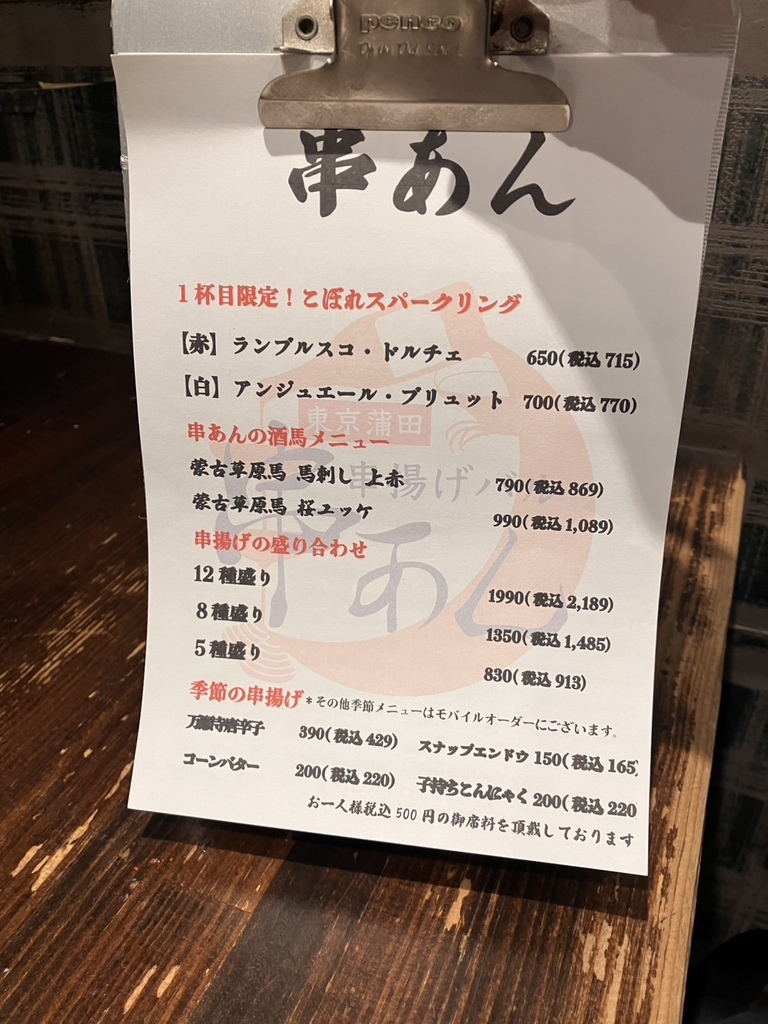 penco
串あん
1杯目限定！こぼれスパークリング
【赤】ランブルスコ・ドルチェ 650(税込715)
【白】アンジュエール・ブリュット 700(税込770)
東京蒲田
串あんの酒馬メニュー
蒙古草原馬 馬刺し 上赤 790(税込869)
串揚げバル
蒙古草原馬 桜ユッケ 990(税込1,089)
串あん
串揚げの盛り合わせ
12種盛り 1990(税込2,189)
8種盛り 1350(税込1,485)
5種盛り 830(税込913)
季節の串揚げ *その他季節メニューはモバイルオーダーにございます。
万願寺唐辛子 390(税込429) スナップエンドウ 150(税込165)
コーンバター 200(税込220) 子持ちこんにゃく 200(税込220
お一人様税込500円の御席料を頂戴しております